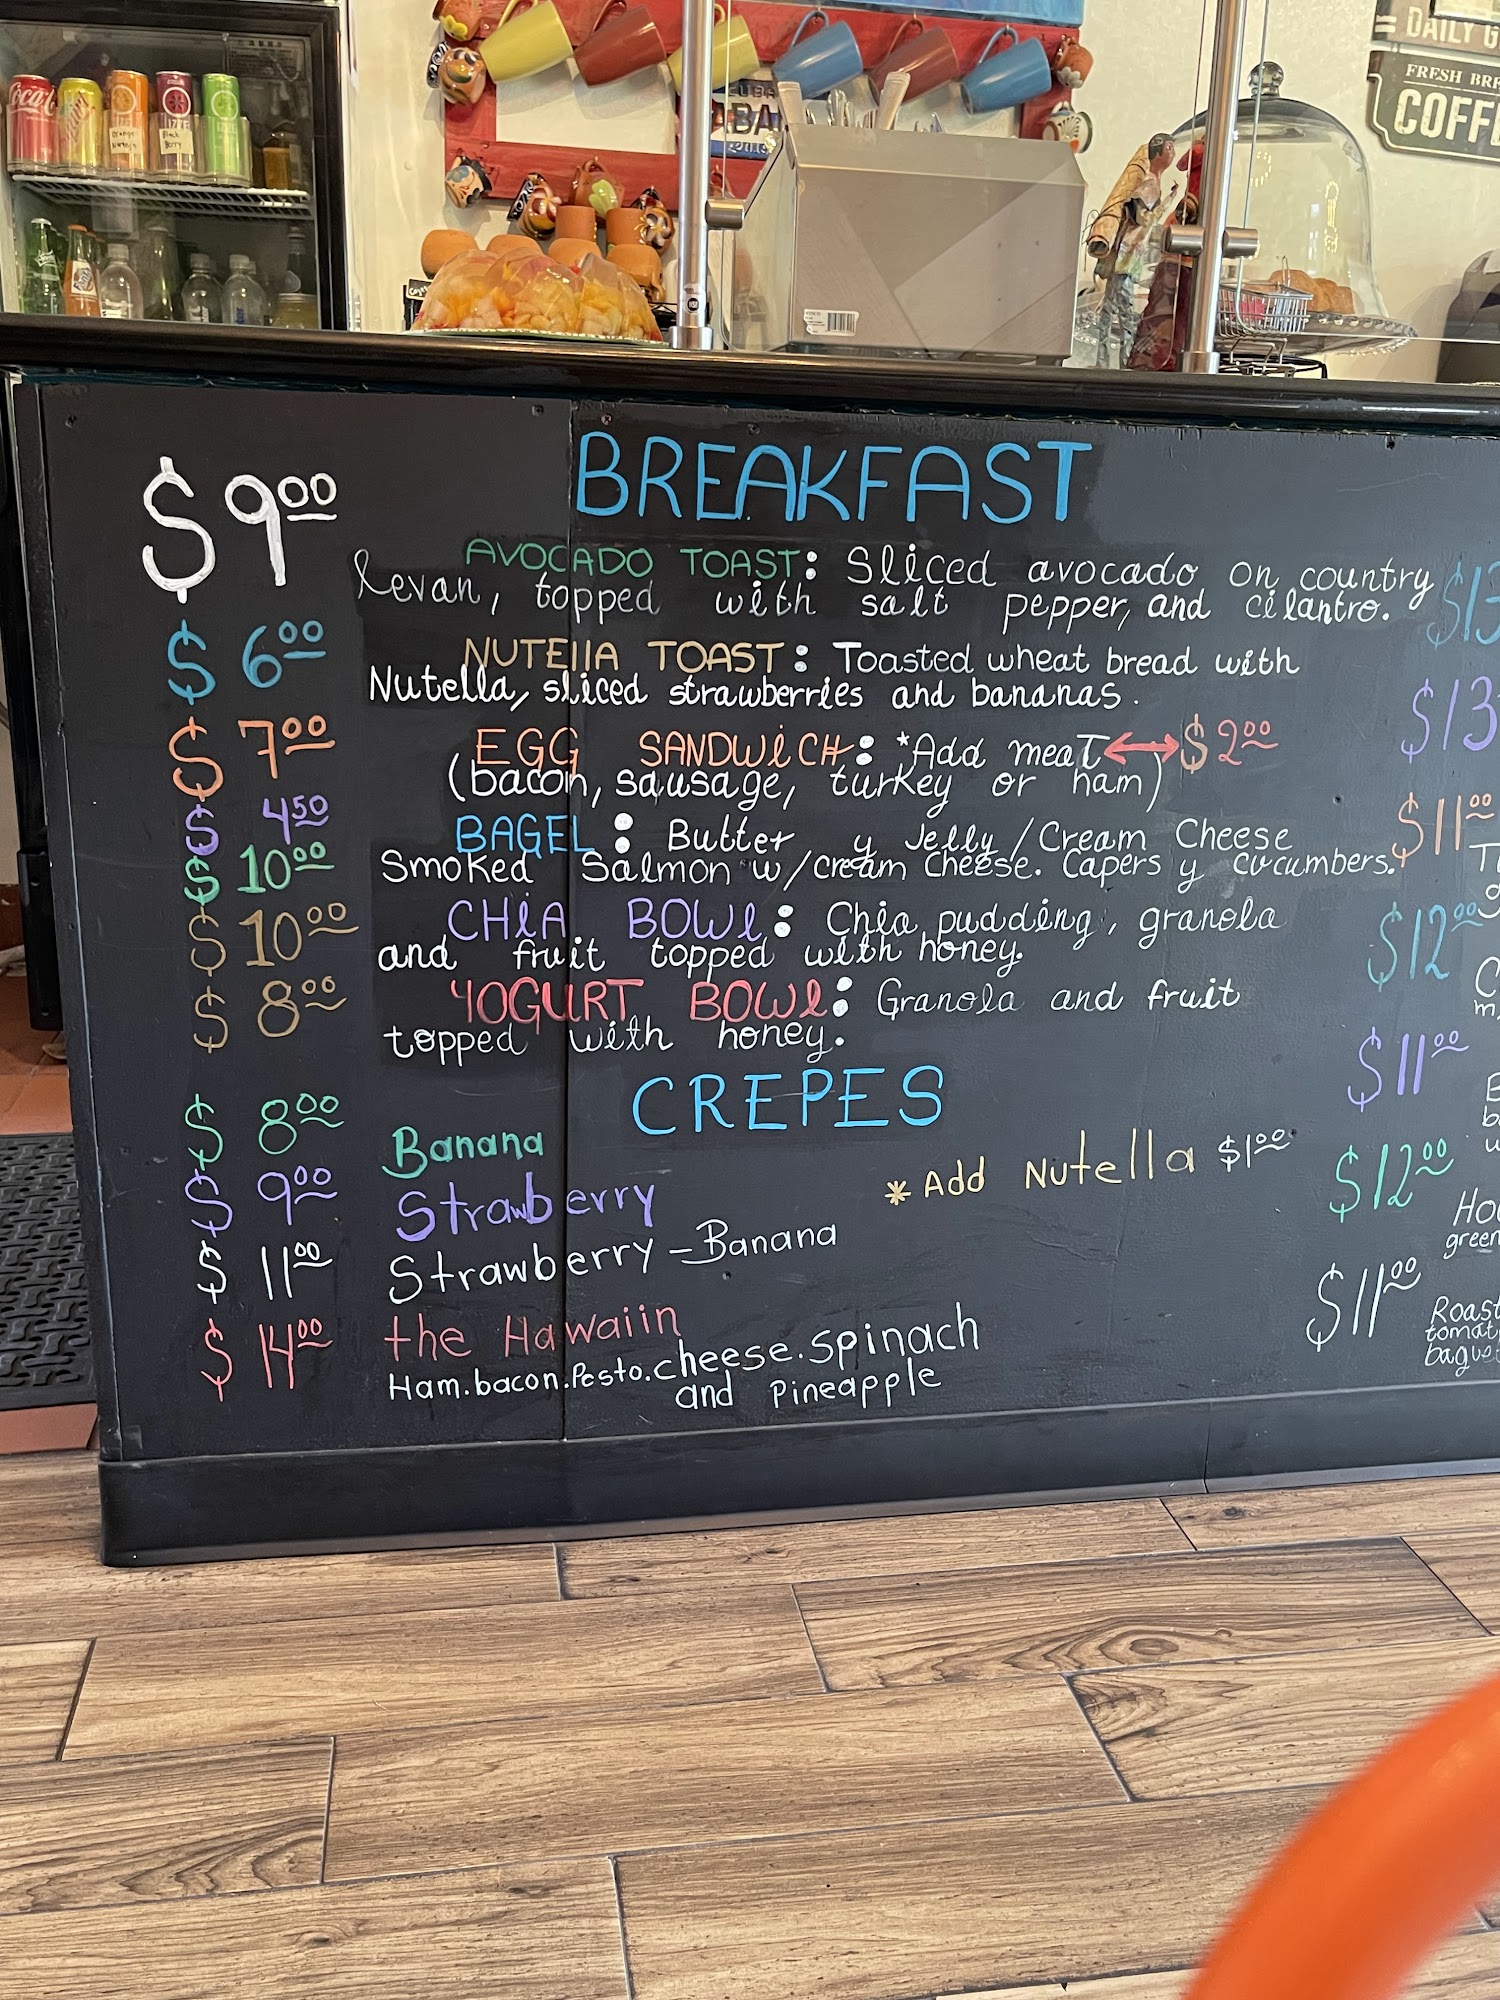 Coca
Orange
Naranja
Black
Berry
DAILY G
FRESH BRE
COFFE
BREAKFAST
$9.00 AVOCADO TOAST: Sliced avocado on country
levan, topped with salt pepper, and cilantro.
$6.00 NUTEllA TOAST: Toasted wheat bread with
Nutella, sliced strawberries and bananas.
$7.00 EGG SANDWiCH: *Add meat $2.00
(bacon, sausage, turkey or ham)
$4.50 BAGEL: Butter y Jelly/Cream Cheese
$10.00 Smoked Salmon w/cream Cheese. Capers y cucumbers.
$10.00 CHiA BOWl: Chia pudding, granola
and fruit topped with honey.
$8.00 YOGURT BOWl: Granola and fruit
topped with honey.
CREPES
$8.00 Banana
*Add Nutella $1.00
$9.00 Strawberry
$11.00 Strawberry-Banana
$14.00 the Hawaiin
Ham.bacon.Pesto.cheese.spinach
and Pineapple
$13
$13
$11.00
$12.00
$11.00
$12.00
Ho
green
$11.00
Roast
tomat
bague